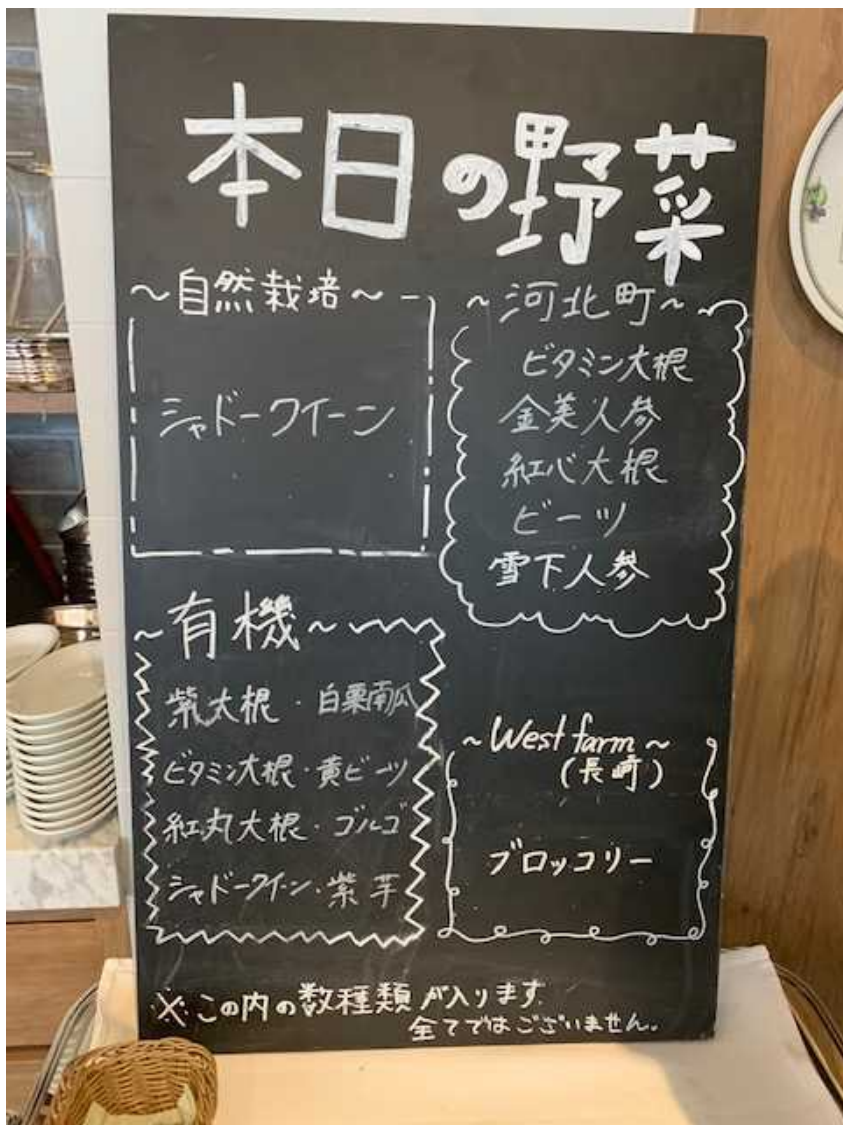 本日の野菜
~自然栽培~
シャドークイーン
~河北町~
ビタミン大根
金美人参
紅心大根
ビーツ
雪下人参
~有機~
紫大根・白栗南瓜
ビタミン大根・黄ビーツ
紅丸大根・ゴルゴ
シャドークイーン・紫芋
~West farm~
(長崎)
ブロッコリー
※この内の数種類が入ります
全てではございません。